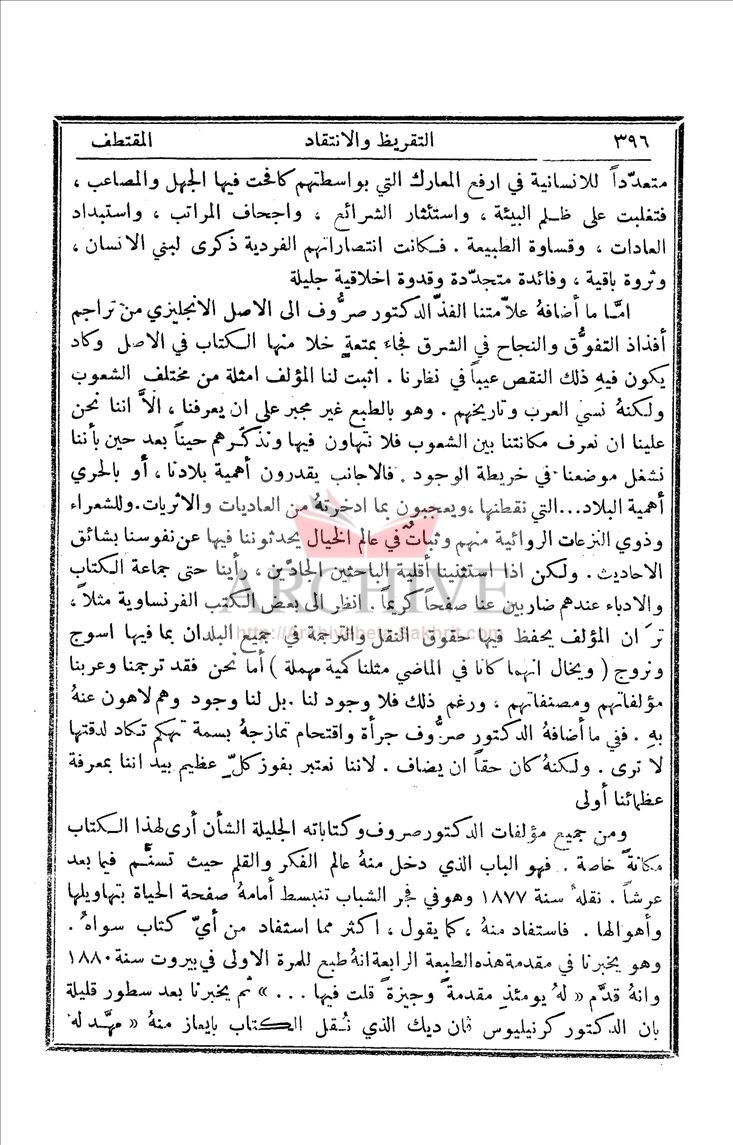 ٣٩٦ التقريظ والانتقاد المقتطف
متعدّداً للانسانية في ارفع المعارك التي بواسطتهم كافحت فيها الجهل والمصاعب ،
فتغلبت على ظلم البيئة ، واستئثار الشرائع ، واجحاف المراتب ، واستبداد
العادات ، وقساوة الطبيعة . فكانت انتصاراتهم الفردية ذكرى لبني الانسان ،
وثروة باقية ، وفائدة متجدّدة وقدوة اخلاقية جليلة
امّا ما أضافهُ علاّمتنا الفذّ الدكتور صرُّوف الى الاصل الانجليزي من تراجم
أفذاذ التفوُّق والنجاح في الشرق فجاء بمتعةٍ خلا منها الكتاب في الاصل وكاد
يكون فيهِ ذلك النقص عيباً في نظرنا . اثبت لنا المؤلف امثلة من مختلف الشعوب
ولكنهُ نسي العرب وتاريخهم . وهو بالطبع غير مجبر على ان يعرفنا ، الاَّ اننا نحن
علينا ان نعرف مكانتنا بين الشعوب فلا نتهاون فيها ونذكّرهم حيناً بعد حين بأننا
نشغل موضعنا في خريطة الوجود . فالاجانب يقدرون أهمية بلادنا ، أو بالحري
أهمية البلاد...التي نقطنها ،ويعجبون بما ادخرتهُ من العاديات والاثريات.وللشعراء
وذوي النزعات الروائية منهم وثباتٌ في عالم الخيال يحدثوننا فيها عن نفوسنا بشائق
الاحاديث . ولكن اذا استثنينا أقلية الباحثين الجادّين ، رأينا حتى جماعة الكتاب
والادباء عندهم ضاربين عنا صفحاً كريماً . انظر الى بعض الكتب الفرنساوية مثلاً،
ترَ ان المؤلف يحفظ فيها حقوق النقل والترجمة في جميع البلدان بما فيها اسوج
ونروج ( ويخال انهما كانا في الماضي مثلنا كمية مهملة ) أما نحن فقد ترجمنا وعربنا
مؤلفاتهم ومصنفاتهم ، ورغم ذلك فلا وجود لنا .بل لنا وجود وهم لاهون عنهُ
بهِ . ففي ما أضافهُ الدكتور صرُّوف جرأة واقتحام تمازجهُ بسمة تهكم تكاد لدقتها
لا ترى . ولكنهُ كان حقاً ان يضاف . لاننا نعتبر بفوز كلّ عظيم بيد اننا بمعرفة
عظمائنا أولى
ومن جميع مؤلفات الدكتور صروف وكتاباته الجليلة الشأن أرى لهذا الكتاب
مكانةً خاصة . فهو الباب الذي دخل منهُ عالم الفكر والقلم حيث تسنَّم فيما بعد
عرشاً . نقلهُ سنة ١٨٧٧ وهو في فجر الشباب تنبسط أمامهُ صفحة الحياة بتهاويلها
وأهوالها . فاستفاد منهُ ،كما يقول ، اكثر مما استفاد من أيّ كتاب سواهُ .
وهو يخبرنا في مقدمة هذه الطبعة الرابعة انهُ طبع للمرة الاولى في بيروت سنة ١٨٨٠
وانهُ قدَّم « لهُ يومئذٍ مقدمةً وجيزةً قلت فيها ... » ثم يخبرنا بعد سطور قليلة
بان الدكتور كرنيليوس ڤان ديك الذي نُقل الكتاب بايعاز منهُ « مهَّد له
ARCHIVE
http://Archivebeta.Sakhrit.com